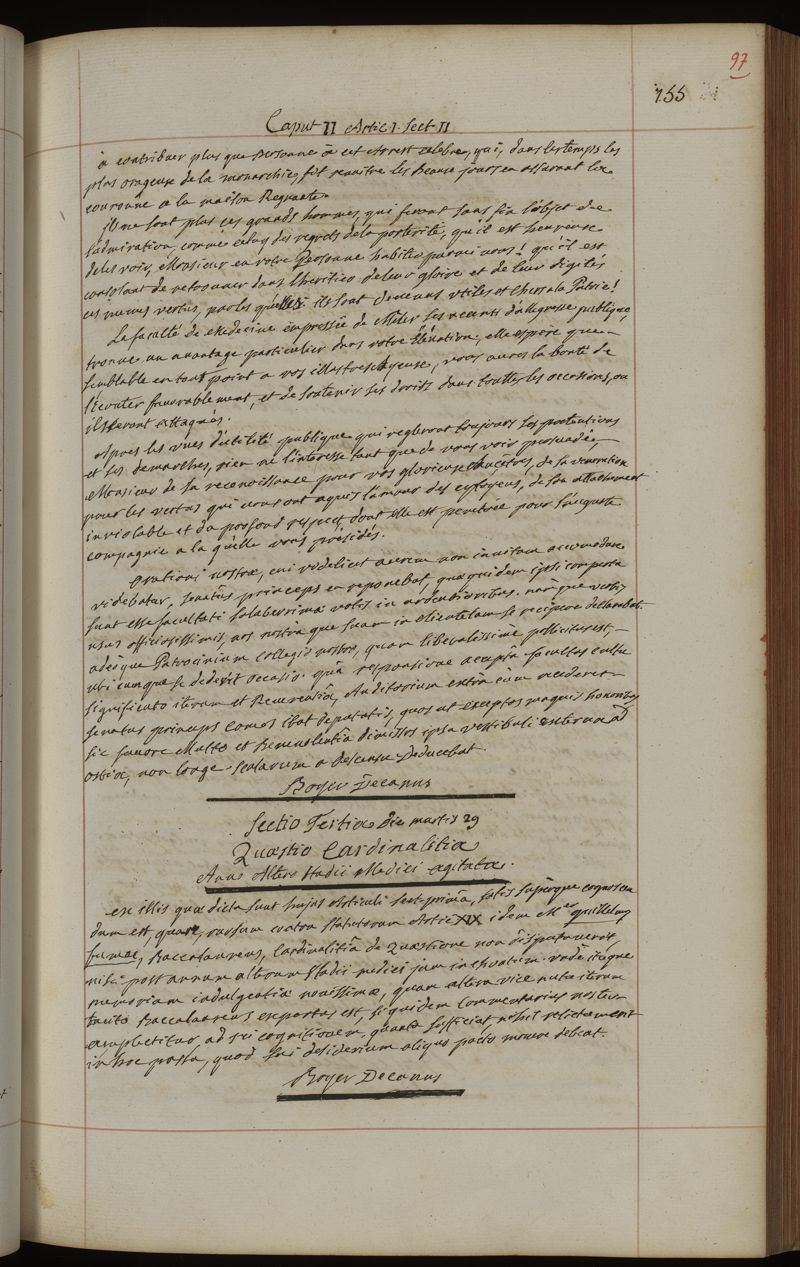 97
155
Caput II Artic I. Sect II
à contribuer plus que personne à cet Arrest celebre, qui, dans les temps les
plus orageux de la monarchie, fit renaitre les beaux jours en assurant la
couronne a la maison Regnante.
Ils ne sont plus ces grands hommes, qui seront sans fin l'objet de
l'admiration, comme celuy des regrets de la posterité, qu'il est heureux
de les voir, Monsieur en votre personne habiter parmi nous! qu'il est
consolant de retrouver dans l'heritier de leur gloire et de leur dignités
ces memes vertus, par les quelles ils sont devenus utiles et chers a la Patrie!
La faculté de Medecine empressée de Mêler ses accents d'allegresse publique,
trouve un avantage particulier dans votre Elévation, elle espere que
semblable en tout point a vos illustres Ayeux, vous aures la bonté de
l'Ecouter favorablement, et de soutenir ses droits dans touttes les occasions, ou
ils seront attaqués.
Apres les vues d'utilité publique qui regleront toujours ses pretentions
et ses demarches, rien ne l'interesse tant que de vous voir persuadé,
Monsieur de sa reconoissance pour vos glorieux Ancêtres, de sa veneration
pour les vertus qui vous ont aquis l'amour des cytoyens, de son attachement
inviolable et du profond respect, dont Elle est penetrée pour l'auguste
compagnie a la quelle vous présidés.
Orationi nostræ, cui videlicet aurem non invitam accomodare
videbatur, senatûs princeps en reponebat, quæ quidem ipsi comperta
sunt esse facultati saluberrimæ votis in ardentioribus. namque verbis
usus officiosissimis, nos nostraque suam in clientelam se recipere declarabat.
adeòque Patrocinium collegio nostro, quam liberalissimè pollicitus est,
ubi cumque se dederit occasio. quâ responsione acceptâ facultas cultus
significato iterum et Reverentiâ, Auditorium extra cùm recederet
senatus princeps comes ibat deputatis, quos ut exceptos magnis honoribus
sic favore Multo et Benevolentiâ dimissos ipsa vestibuli externa ad
ostia, non longe scalarum a descensu deducebat.
Boyer Decanus
Sectio Tertia Die martis 29
Quæstio Cardinalitia
Anno Altero stadii Medici agitata.
ex illis quæ dicta sunt hujus Articuli sect. primâ, satis superque cognoscen
dum est, quare, rursum contra statutorum Artic XIX idem Mus guillelmus
fumée, Baccalaureus, Cardinalitiâ de Quæstione non disputaverit,
nisi post annum alterum stadii medici jam inchoatum. unde itaque
memoriam indulgentiæ novissimæ, quam altera vice nutu iterum
tacito Baccalaureus expertus est, siquidem commentarius noster
amplectitur, ad sui cognitionem, quantò sufficiat, nihil relictum est
in hoc posita, quod sui desiderium aliquo pacto movere debeat.
Boyer Decanus